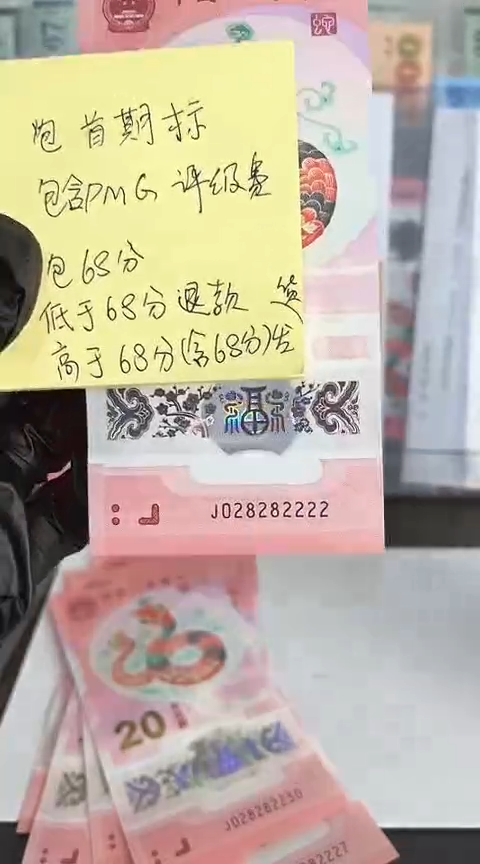 包首期标
包含PMG评级费
包68分
低于68分退款
高于68分(含68分)发货
福
J028282222
20
J028282230